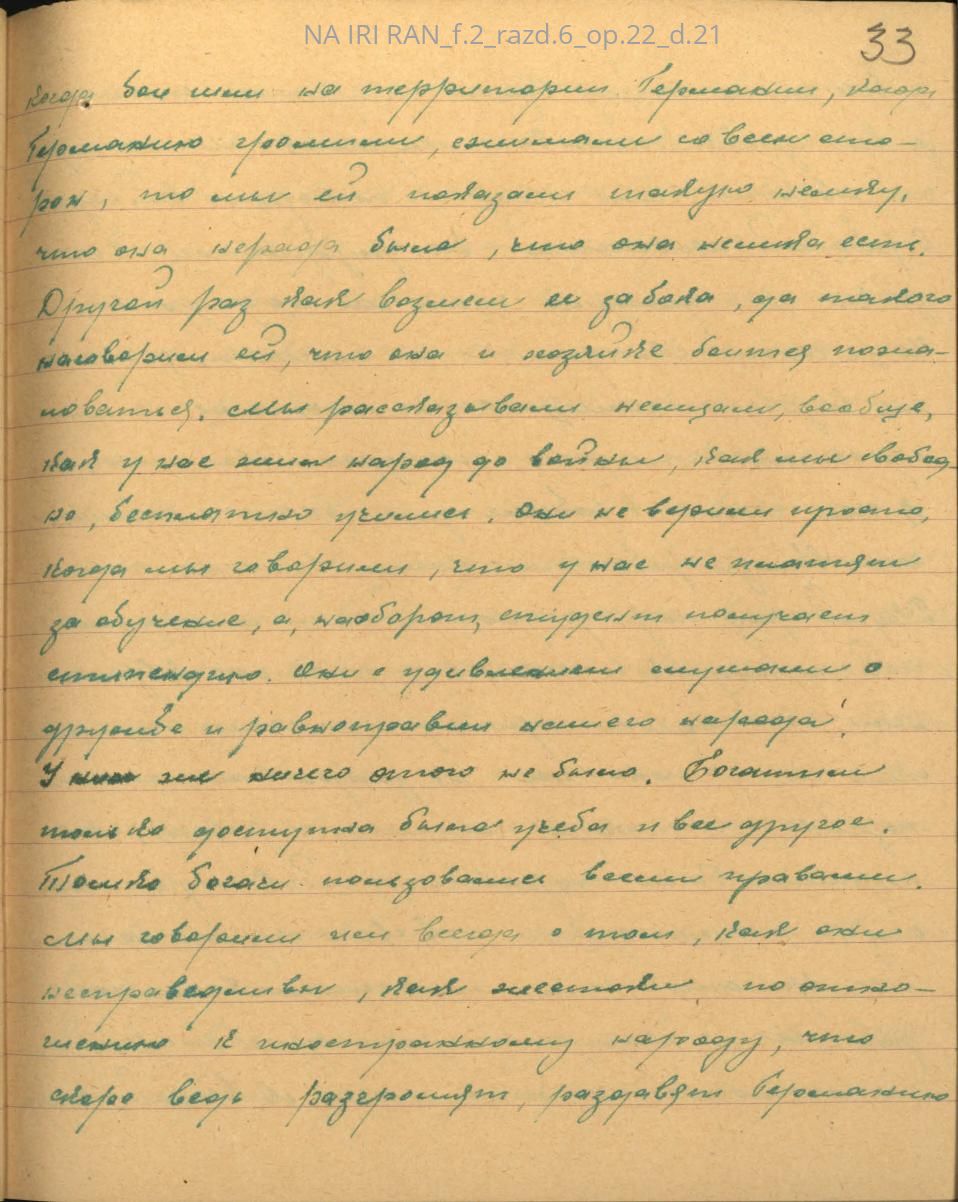 NA IRI RAN_f.2_razd.6_op.22_d.21
33
когда бои шли на территории Германии, когда
Германию громили, сжимали со всех сто-
рон, то мы ей показали такую немку,
что она нерада была, что она немка есть.
Другой раз как возьмем ее за бока, да такого
наговорим ей, что она и хозяйке боится пожа-
ловаться. Мы рассказывали немцам, вообще,
как у нас жил народ до войны, как мы свобод-
но, бесплатно учились. Они не верили просто,
когда мы говорили, что у нас не платят
за обучение, а, наоборот, студент получает
стипендию. Они с удивлением слушали о
дружбе и равноправии нашего народа.
У них же ничего этого не было. Богатым
только доступна была учеба и все другое.
Только богачи пользовались всеми правами.
Мы говорили им всегда о том, как они
несправедливы, как жестоки по отно-
шению к иностранному народу, что
скоро ведь разгромят, раздавят Германию